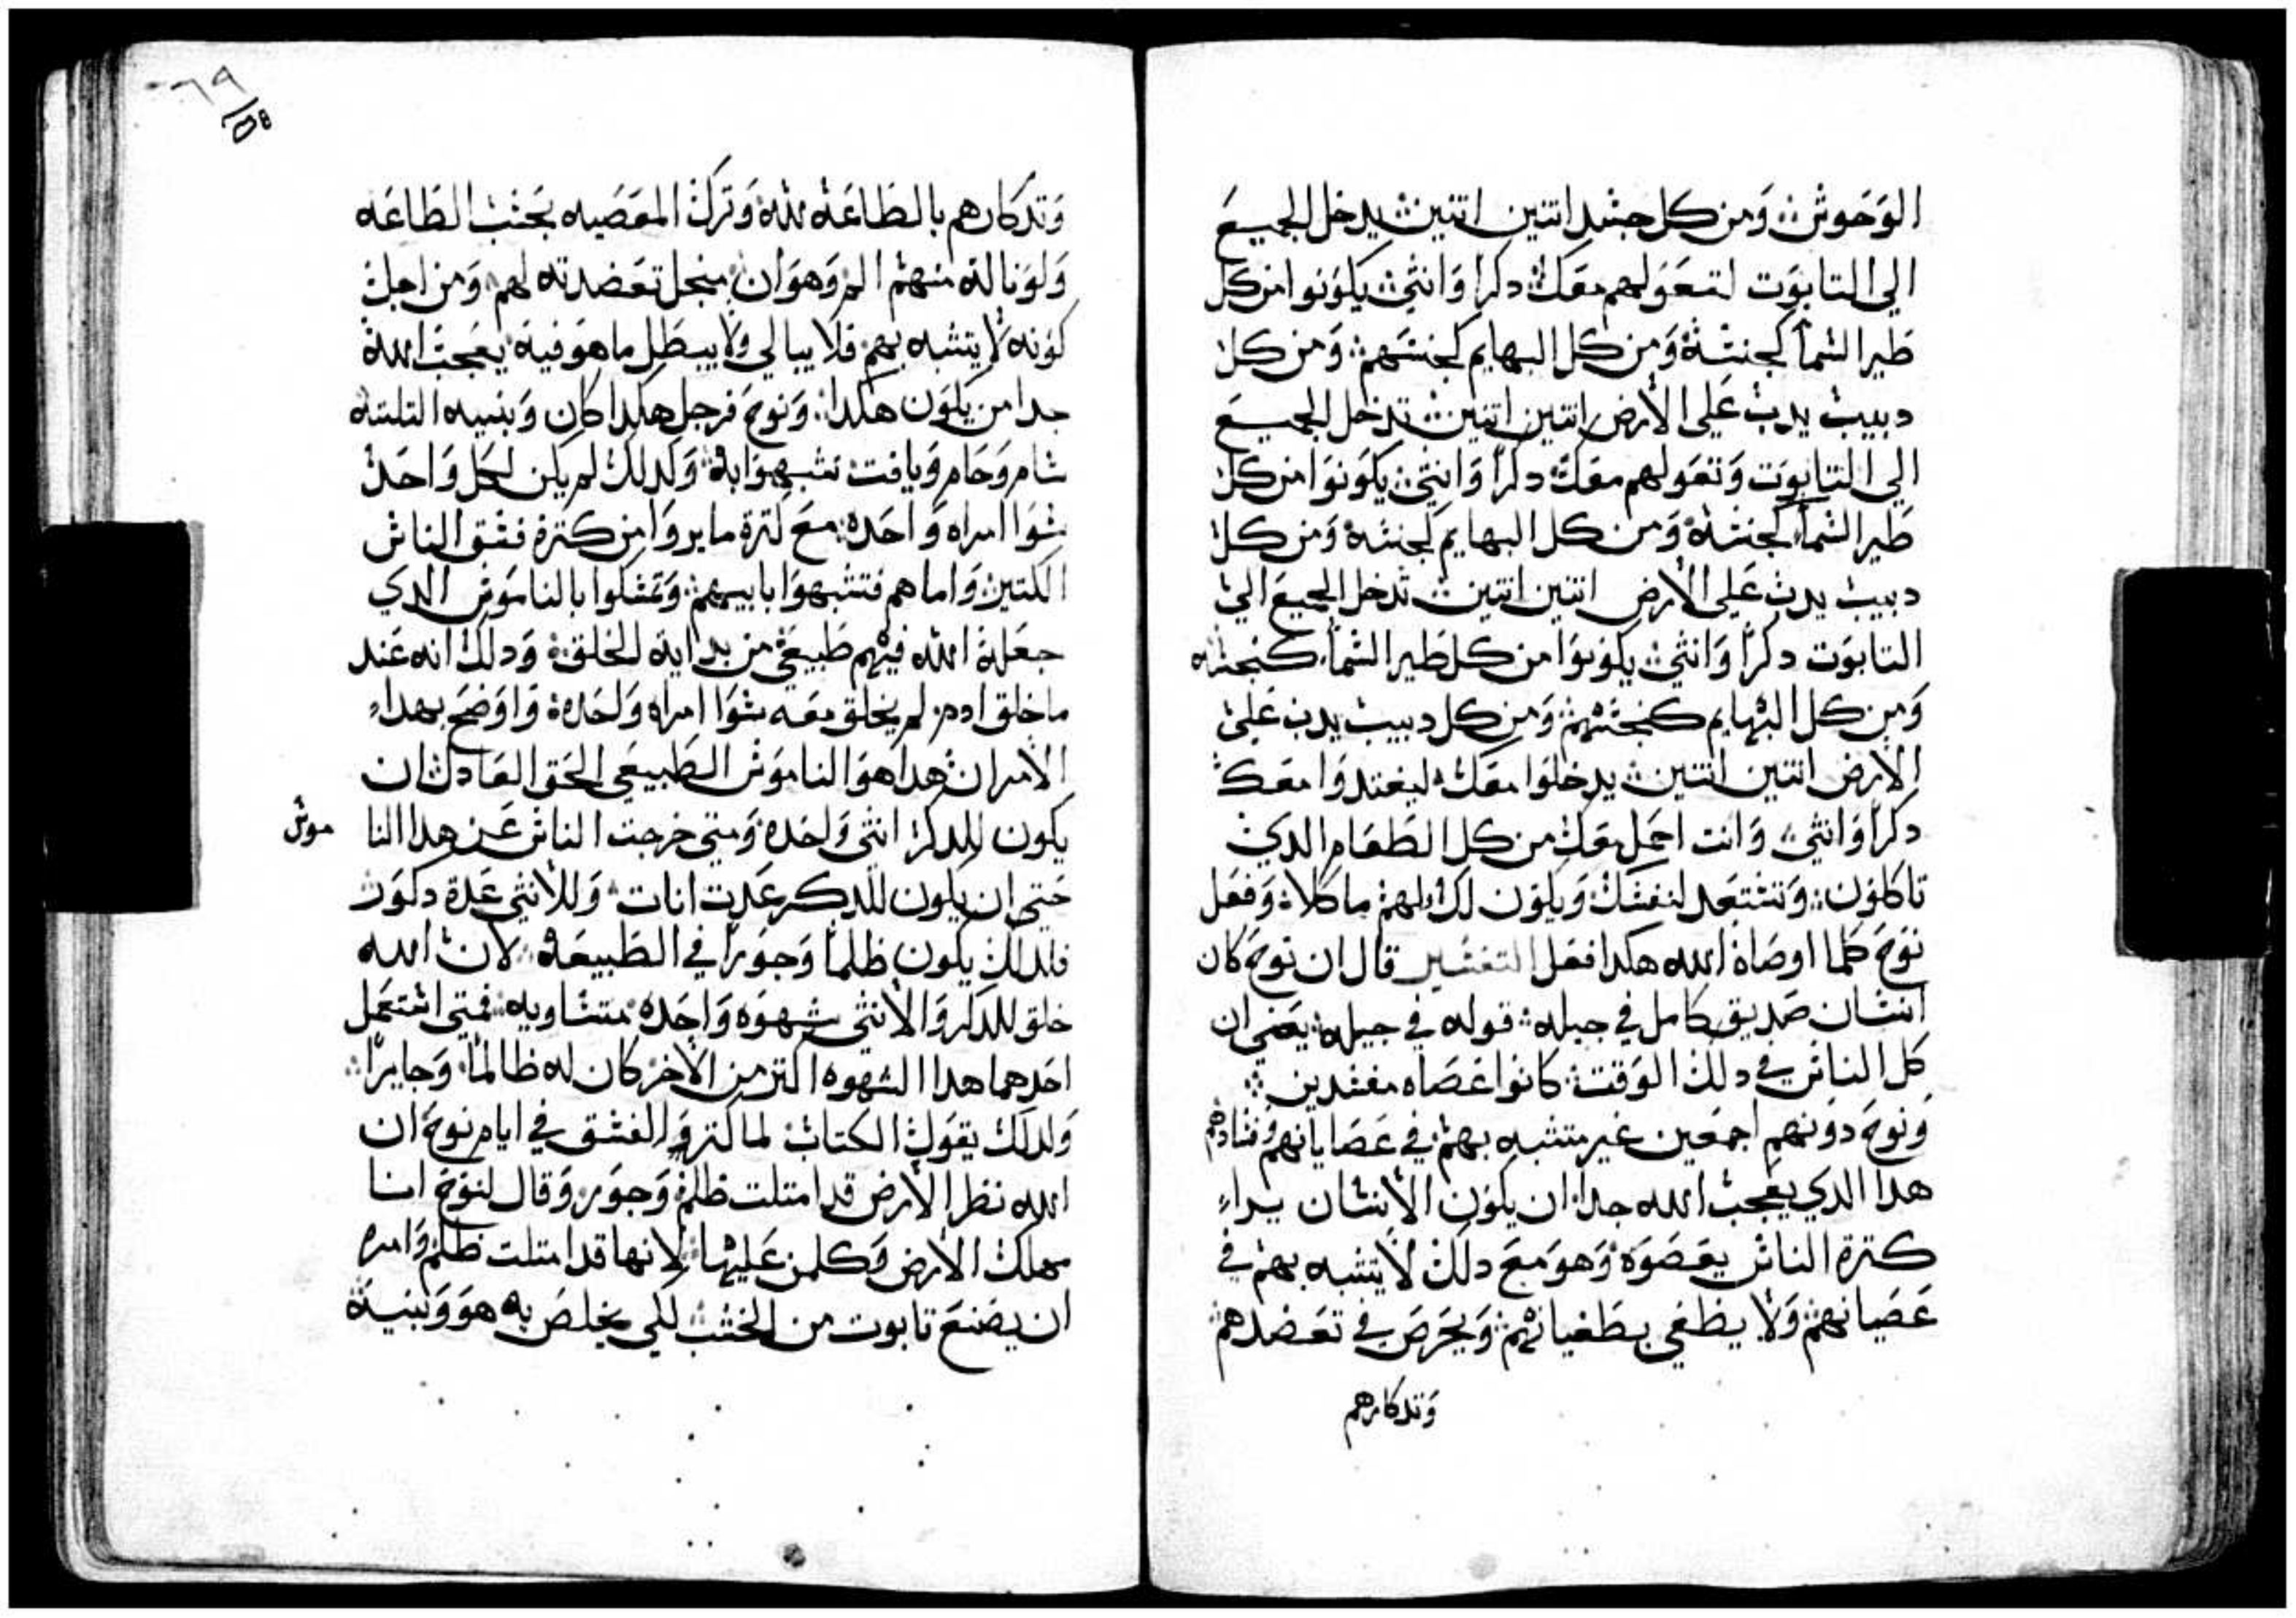 الوحوش ومن كل جسد اتنين اتنين يدخل الجميع
الي التابوت لتعولهم معك دكرا وانثي يكونوا من كل
طير السما كجنسة ومن كل البهايم كجنسهم ومن كل
دبيب يدب علي الأرض اتنين اتنين تدخل الجميع
الي التابوت وتعولهم معك دكرا وانثي يكونوا من كل
طير السما كجنسة ومن كل البهايم كجنسة ومن كل
دبيب يدب علي الأرض اتنين اتنين تدخل الجميع الي
التابوت دكرا وانثي يكونوا من كل طير السما كنجسه
ومن كل البهايم كنجسهم ومن كل دبيب يدب علي
الأرض اتنين اتنين يدخلوا معك ليغتدوا معك
دكرا وانثي وانت احمل معك من كل الطعام الدي
تاكلون وتستعد لنفسك ويكون لك ولهم ماكلا وفعل
نوح كلما اوصاة الله هكدا فعل التفسير قال ان نوح كان
انسان صديق كامل في جيله قوله في جيله يعني ان
كل الناس في دلك الوقت كانوا عصاه مفسدين
ونوح دونهم اجمعين غير متشبه بهم في عصايانهم وفسادهم
هدا الدي يعجب الله جدا ان يكون الأنسان يراء
كترة الناس يعصوة وهو مع دلك لا يتشبه بهم في
عصيانهم ولا يطغي بطغيانهم ويحرص في تعضدهم
وتدكارهم
وتدكارهم بالطاعة لله وترك المعصيه بحسب الطاعه
ولو نالة منهم الم وهوان منجل تعضدته لهم ومن اجل
كونه لا يتشبه بهم فلا يبالي ولا يبطل ما هو فية يعجب الله
جدا من يكون هكدا ونوح فرجل هكدا كان وبنيه التلتة
سام وحام ويافت تشبهوا بة وكدلك لم يكن لكل واحد
سوا امراه واحده مع كترة ما يروا من كترة فسق الناس
الكتير واما هم فتشبهوا بابيهم وتمسكوا بالناموس الدي
جعلة الله فيهم طبيعي من بداية الخلق ودلك انه عند
ما خلق ادم لم يخلق معه سوا امراه واحدة واوضح بهداء
الأمر ان هدا هو الناموس الطبيعي الحق العادل ان
يكون للدكر انثي واحده ومتي خرجت الناس عن هدا النا
موس
حتي ان يكون للدكر عدت انات وللأنثي عدة دكور
فلدلك يكون ظلما وجورا في الطبيعة لان الله
خلق للدكر والأنثي شهوه واحدة متساويه فمتي استعمل
احدهما هدا الشهوه اكتر من الأخر كان له ظالما وجايرا
ولدلك يقول الكتاب لما كتر الفسق في ايام نوح ان
الله نظر الأرض قد امتلت ظلم وجور وقال لنوح انا
مهلك الأرض وكلمن عليها لانها قد امتلت ظلم وامره
ان يصنع تابوت من الخشب لكي يخلص به هو وبنية